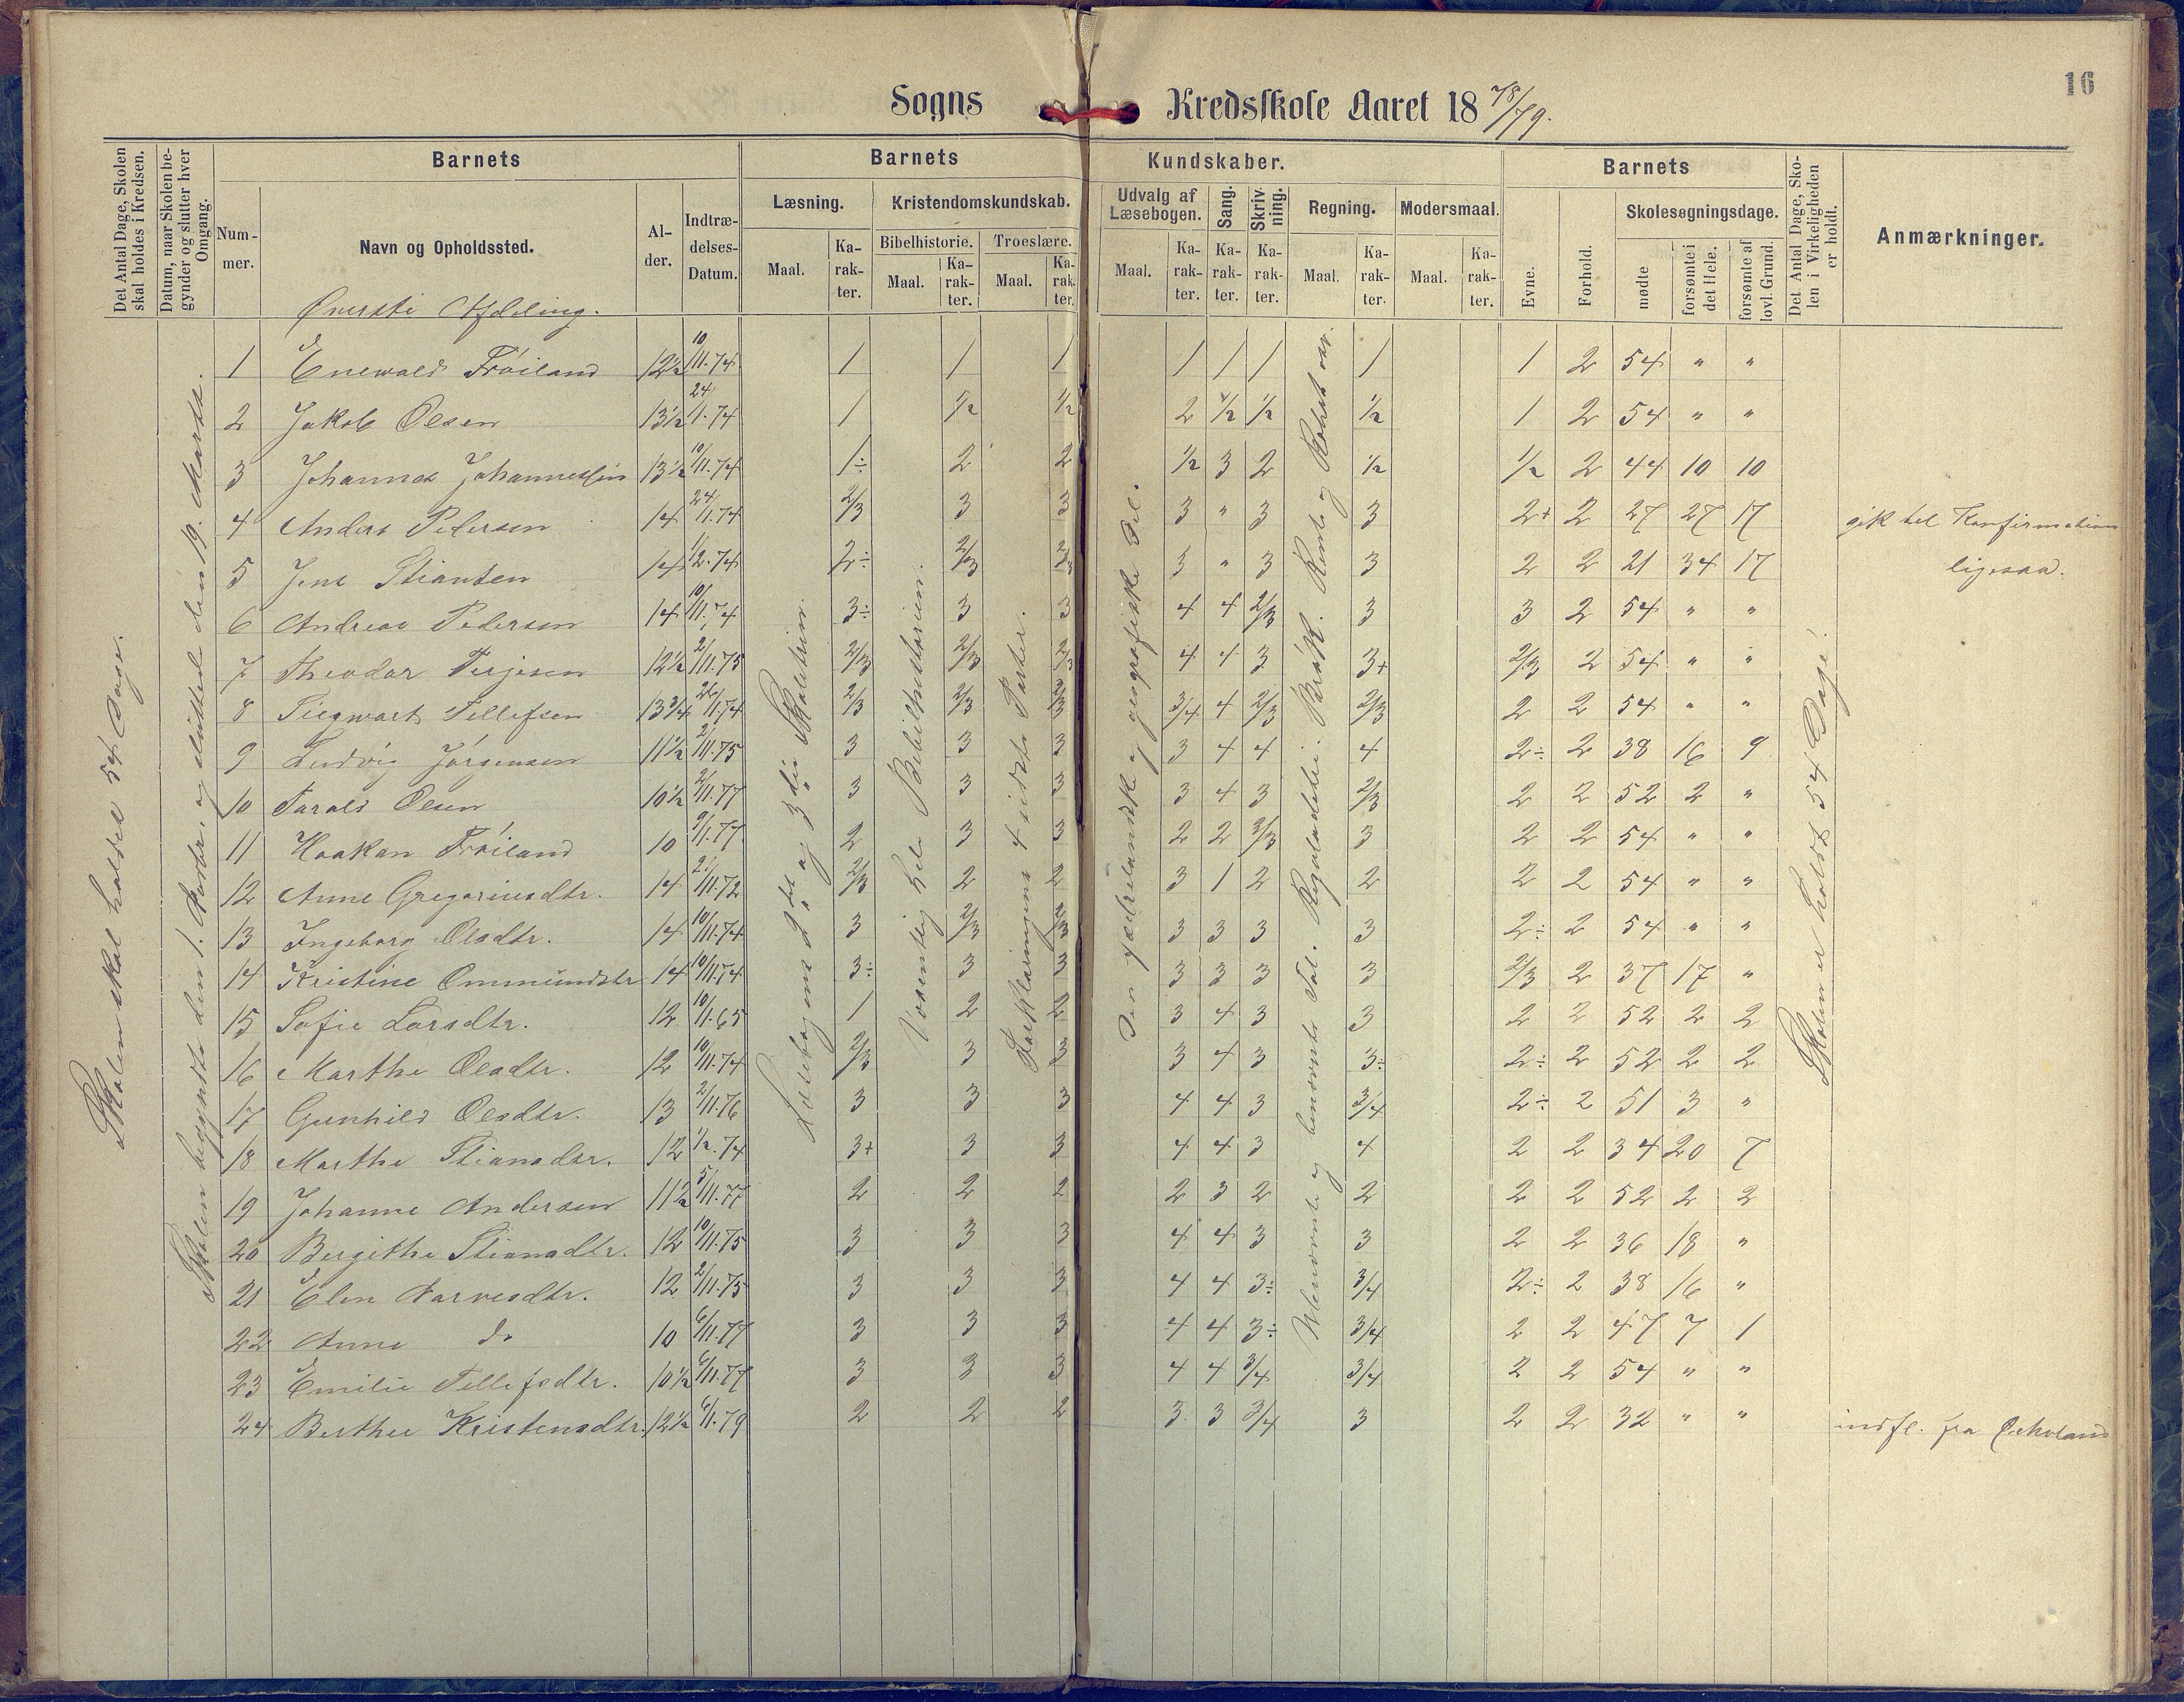 16
Sogns Kredsskole Aaret 1878/79.
Det Antal Dage, Skolen skal holdes i Kredsen.
Datum, naar Skolen begynder og slutter hver Omgang.
Barnets
Nummer.
Navn og Opholdssted.
Alder.
Indtrædelses-Datum.
Barnets Kundskaber.
Læsning.
Maal.
Karakter.
Kristendomskundskab.
Bibelhistorie.
Maal.
Karakter.
Troeslære.
Maal.
Karakter.
Udvalg af Læsebogen.
Maal.
Karakter.
Sang.
Karakter.
Skrivning.
Karakter.
Regning.
Maal.
Karakter.
Modersmaal.
Maal.
Karakter.
Barnets
Evne.
Forhold.
Skolesøgningsdage.
mødte
forsømte i det Hele.
forsømte af lovl. Grund.
Det Antal Dage, Skolen i Virkeligheden er holdt.
Anmærkninger.
Øverste Afdeling.
Skolen skal holdes 54 Dage.
Skolen begyndte den 1. og sluttede den 19. Marts.
Læsebogens 2det og 3die Skoletrin.
Væsentlig hele Bibelhistorien.
Forklaringens 4 sidste Parter.
Den fædrelandske og geografiske Del.
Ubenævnte og benævnte Tal. Reguladetri. Brøkr. Rente og Rabat osv.
Skolen er holdt 54 Dage.
1 Enewald Fröiland 12½ 10/11.74 1 1 1 1 1 1 1 1 2 54 " "
2 Jakob Olsen 13½ 24/1.74 1 1/2 1/2 2 1/2 1/2 1/2 1 2 54 " "
3 Johannes Johannessen 13½ 10/11.74 1÷ 2 2 1/2 3 2 1/2 1/2 2 44 10 10
4 Anders Pedersen 14 24/1.74 2/3 3 3 3 " 3 3 2+ 2 27 27 17 gik til Konfirmation
5 Jens Stiansen 14 1/2.74 2÷ 2/3 2/3 3 " 3 3 2 2 21 34 17 ligesaa.
6 Andreas Pedersen 14 10/11.74 3÷ 3 3 4 4 2/3 3 3 2 54 " "
7 Theodor Terjesen 12½ 2/11.75 2/3 2/3 2/3 4 4 3 3+ 2/3 2 54 " "
8 Siegwart Tellefsen 13¾ 26/1.74 2/3 2/3 2/3 3/4 4 2/3 2/3 2 2 54 " "
9 Ludvig Jörgensen 11½ 2/11.75 3 3 3 3 4 4 4 2÷ 2 38 16 9
10 Tarald Olsen 10½ 2/11.77 3 3 3 3 4 3 2/3 2 2 52 2 "
11 Haakon Fröiland 10 9/1.77 2 3 3 2 2 2/3 3 2 2 54 " "
12 Anne Gregoriusdtr. 14 2/11.72 2/3 2 2 3 1 2 2 2 2 54 " "
13 Ingeborg Olsdtr. 14 10/11.74 3 2/3 2/3 3 3 3 3 2÷ 2 54 " "
14 Kristine Ommundsdtr 14 10/11.74 3÷ 3 3 3 3 3 3 2/3 2 37 17 "
15 Sofie Larsdtr. 12 10/1.65 1 2 2 3 4 3 3 2 2 52 2 2
16 Marthe Olsdtr. 12 10/11.74 2/3 3 3 3 4 3 3÷ 2÷ 2 52 2 2
17 Gunhild Olsdtr. 13 2/11.76 3 3 3 4 4 3 3/4 2÷ 2 51 3 "
18 Marthe Stiansdtr. 12 1/2.74 3+ 3 3 4 4 3 4 2 2 34 20 7
19 Johanne Andersen 11½ 5/11.77 2 2 2 2 3 2 2 2 2 52 2 2
20 Bergithe Stiansdtr. 12 10/11.75 3 3 3 4 4 3 3 2 2 36 18 "
21 Elen Narvesdtr. 12 2/11.75 3 3 3 4 4 3÷ 3/4 2÷ 2 38 16 "
22 Anne do 10 6/11.77 3 3 3 4 4 3÷ 3/4 2 2 47 7 1
23 Emilie Tellefsdtr. 10½ 6/11.77 3 3 3 4 4 3/4 3/4 2 2 54 " "
24 Berthe Kristensdtr. 12½ 6/1.79 2 2 2 3 3 3/4 3 2 2 32 " " indfl. fra